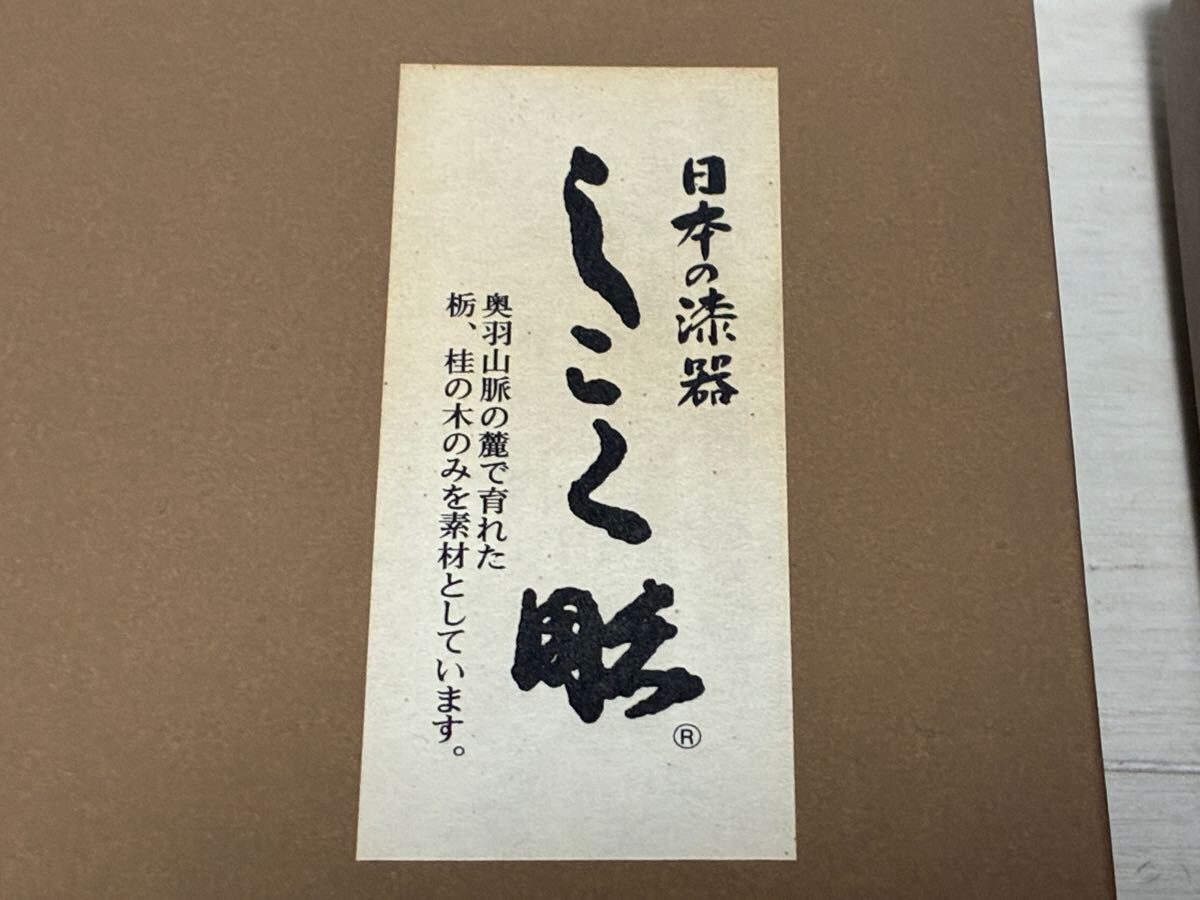 日本の漆器
しこく
®
奥羽山脈の麓で育れた
栃、桂の木のみを素材としています。